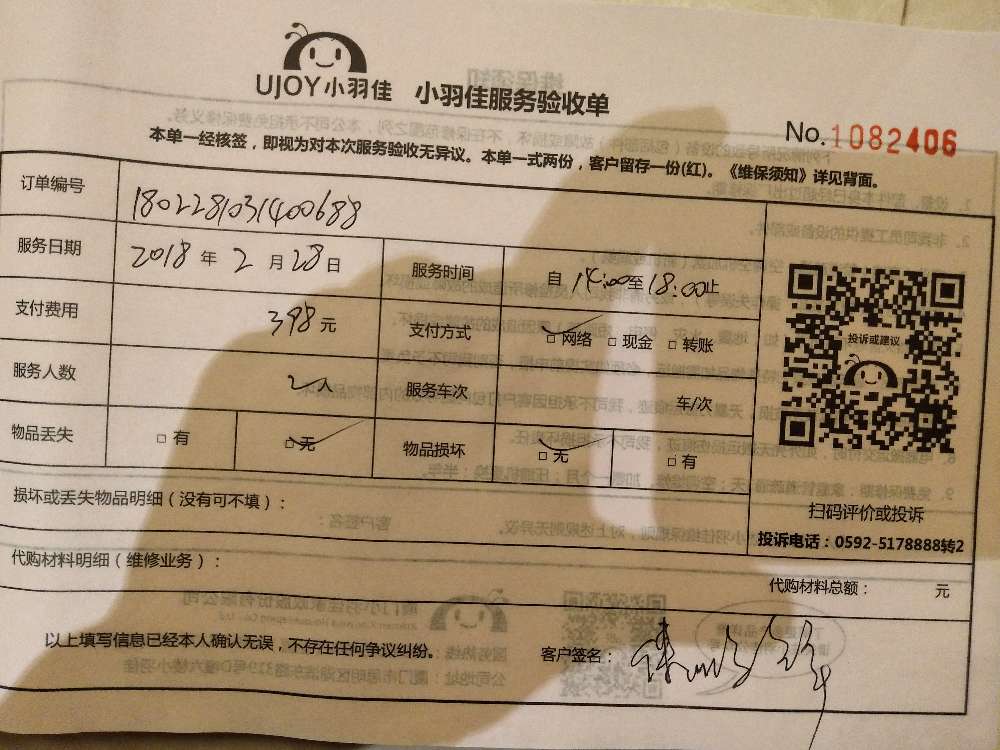 UJOY小羽佳 小羽佳服务验收单
No.1082406
本单一经核签，即视为对本次服务验收无异议。本单一式两份，客户留存一份(红)。《维保须知》详见背面。
订单编号 1802281031400688
服务日期 2018 年 2 月 28 日 服务时间 自 14:00 至 18:00 止
支付费用 398 元 支付方式 □ 网络 □ 现金 □ 转账
服务人数 2人 服务车次 车/次
物品丢失 □ 有 □ 无 物品损坏 □ 无 □ 有
投诉或建议
扫码评价或投诉
投诉电话：0592-5178888转2
损坏或丢失物品明细（没有可不填）：
代购材料明细（维修业务）：
代购材料总额： 元
以上填写信息已经本人确认无误，不存在任何争议纠纷。 客户签名：